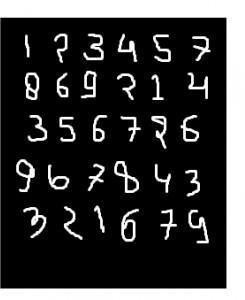 1 2 3 4 5 7
8 6 9 2 1 4
3 5 6 7 8 6
9 6 7 8 4 3
3 2 1 6 7 9